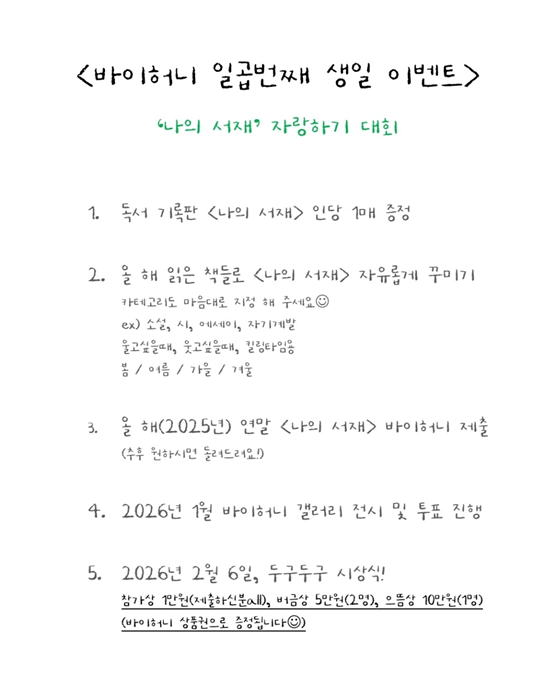 <바이허니 일곱번째 생일 이벤트>
'나의 서재' 자랑하기 대회
1. 독서 기록판 <나의 서재> 인당 1매 증정
2. 올 해 읽은 책들로 <나의 서재> 자유롭게 꾸미기
카테고리도 마음대로 지정 해 주세요☺
ex) 소설, 시, 에세이, 자기계발
울고싶을때, 웃고싶을때, 킬링타임용
봄 / 여름 / 가을 / 겨울
3. 올 해(2025년) 연말 <나의 서재> 바이허니 제출
(추후 원하시면 돌려드려요!)
4. 2026년 1월 바이허니 갤러리 전시 및 투표 진행
5. 2026년 2월 6일, 두구두구 시상식!
참가상 1만원(제출하신분all), 버금상 5만원(2명), 으뜸상 10만원(1명)
(바이허니 상품권으로 증정됩니다☺)